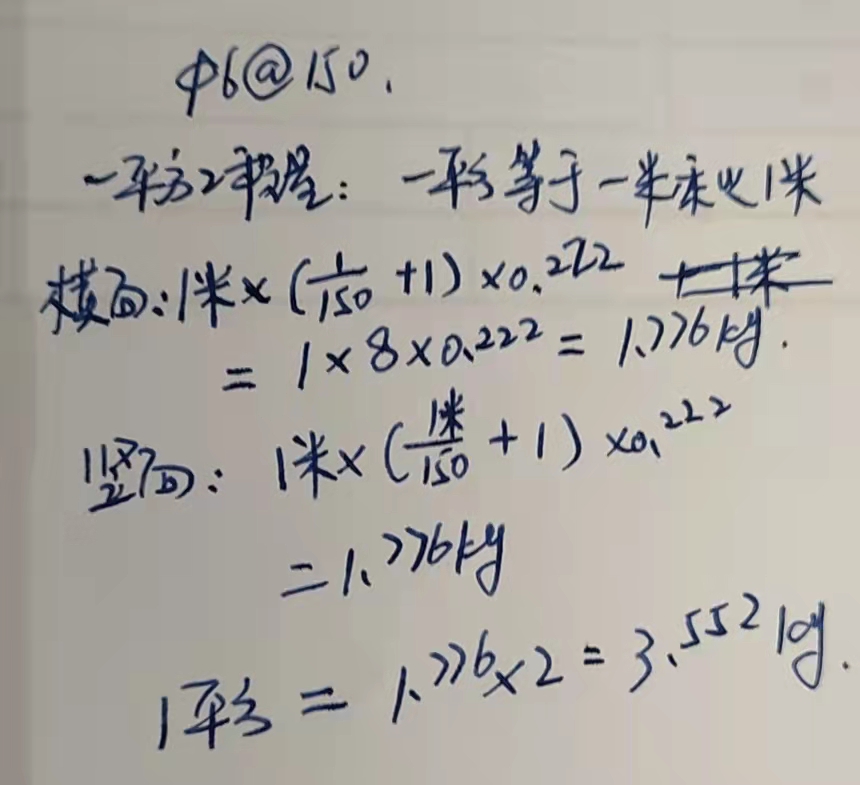 Φ6@150.
一平方2重量：一平方等于一米乘以1米
横面：1米×(1/150+1)×0.222
=1×8×0.222=1.776kg.
竖面：1米×(1米/150+1)×0.222
=1.776kg
1平方=1.776×2=3.552kg.